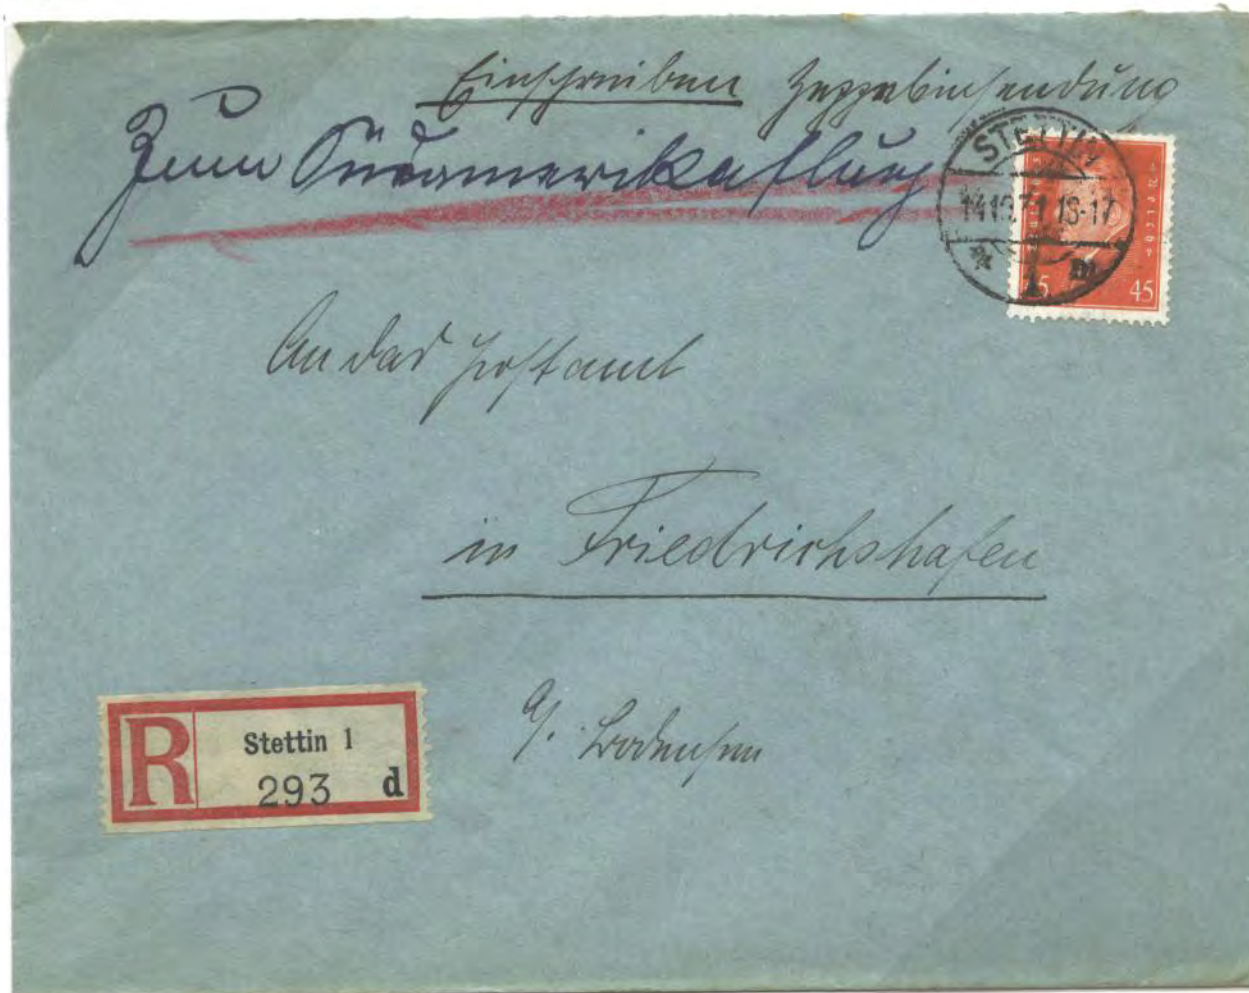 Einschreiben Zeppelinsendung
Zum Südamerikaflug
STETTIN
14.10.31.16-17
* 1 m
45 45
An das Postamt
in Friedrichshafen
a/. Bodensee
R Stettin 1
293 d